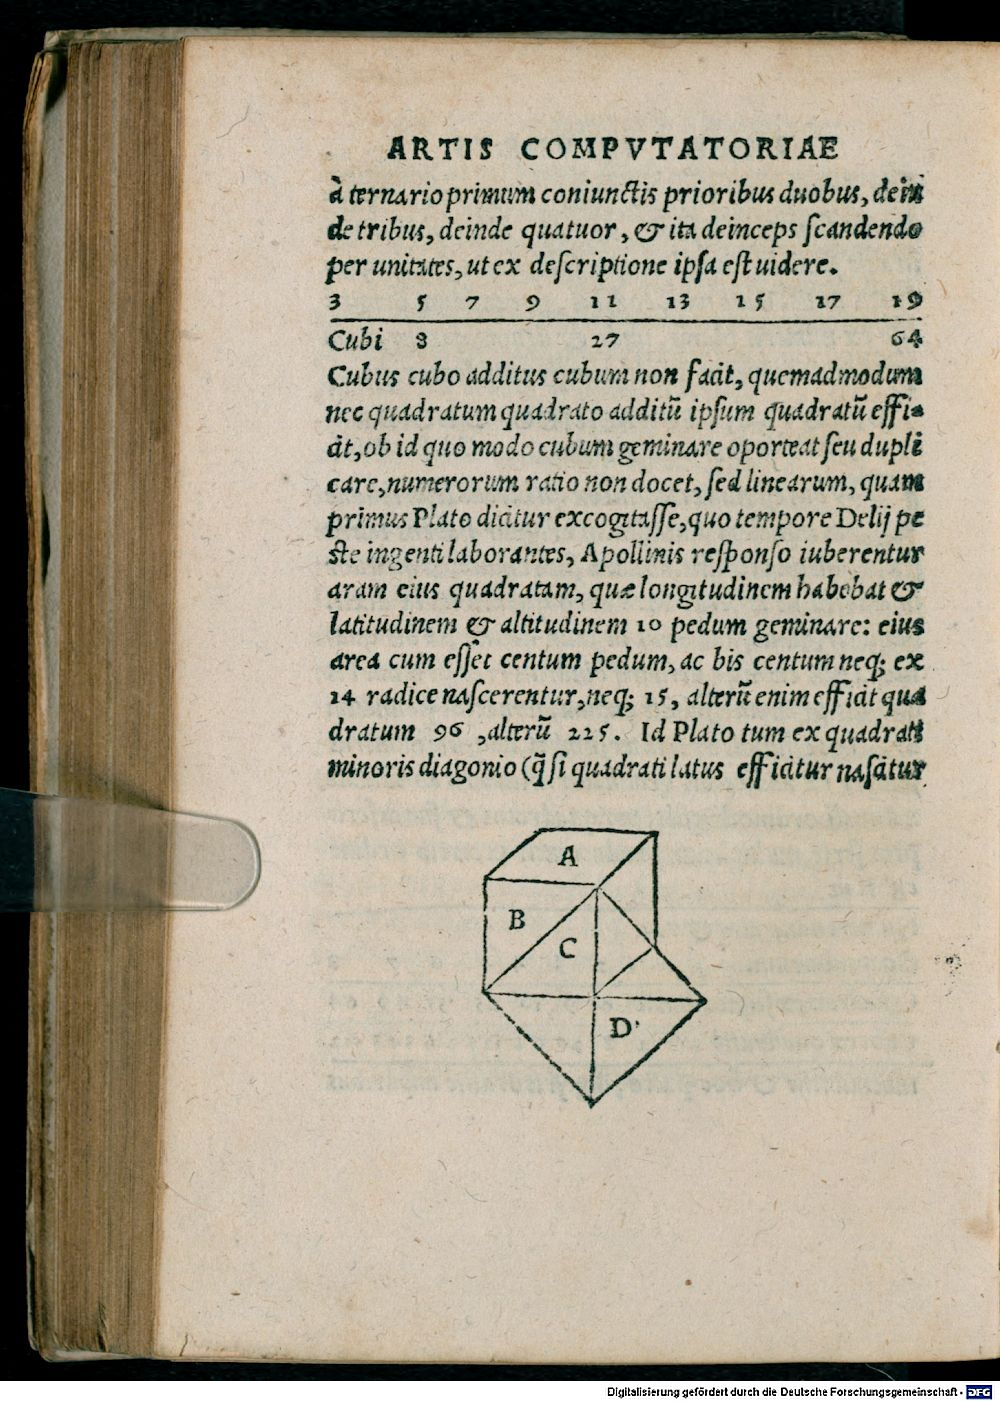 ARTIS COMPVTATORIAE
à ternario primum coniunctis prioribus duobus, dein
de tribus, deinde quatuor, & ita deinceps ſcandendo
per unitates, ut ex deſcriptione ipſa eſt uidere.
3 5 7 9 11 13 15 17 19
Cubi 8 27 64
Cubus cubo additus cubum non facit, quemadmodum
nec quadratum quadrato additū ipſum quadratū effi-
cit, ob id quo modo cubum geminare oporteat ſeu dupli
care, numerorum ratio non docet, ſed linearum, quam
primus Plato dicitur excogitaſſe, quo tempore Delij pe
ſte ingenti laborantes, Apollinis reſponſo iuberentur
aram eius quadratam, quæ longitudinem habebat &
latitudinem & altitudinem 10 pedum geminare: eius
area cum eſſet centum pedum, ac bis centum neq; ex
14 radice naſcerentur, neq; 15, alterū enim efficit qua
dratum 96 , alterū 225. Id Plato tum ex quadrati
minoris diagonio (q̃ ſi quadrati latus efficitur naſcitur
A
B
C
D
Digitalisierung gefördert durch die Deutsche Forschungsgemeinschaft - DFG